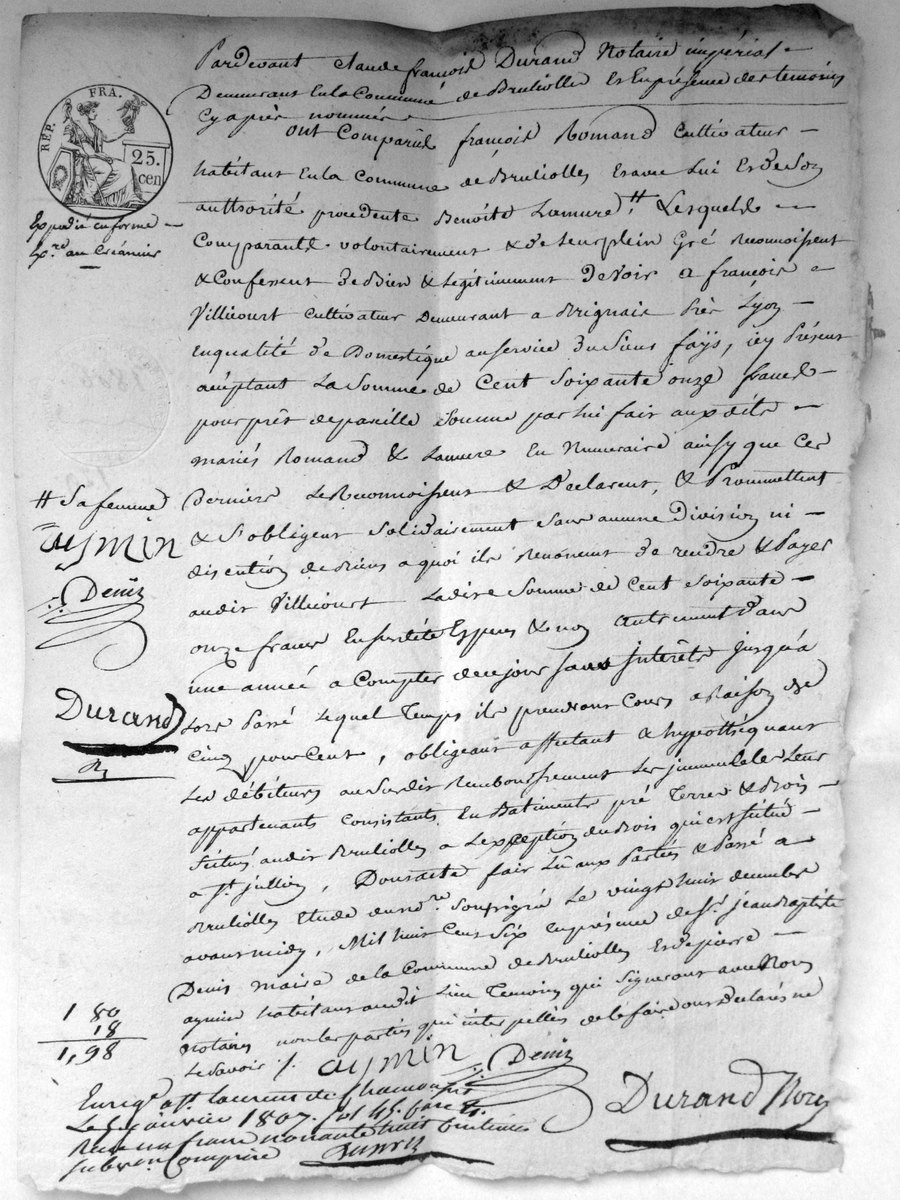 Pardevant Claude françois Durand Notaire impérial
Demeurant En la Commune de Brulliolle Et En présence des temoins
Cy après nommés
REP. FRA.
25. cen
ont Comparû françois Romand Cultivateur
habitant En la Commune de Brulliolles Et avec Lui Et de Son
authorité procedente Benoite Lamure # Lesquels
Expedié en forme
Ex.re au Créancier
Comparants volontairement & de leur plein Gré Reconnoissent
& Confessent de Bien & Légitimement Devoir a françois
Villicourt Cultivateur Demeurant a Brignais Près Lyon
En qualité de Domestique au service du Sieur faÿs, icy Présent
acceptant La Somme de Cent Soixante onze francs
pour prêt de pareille Somme par lui fait aux dits
mariés Romand & Lamure En Numeraire ainsy que Ces
# Sa femme
Derniers Le Reconnoissent & Déclarent, & Promettent
& S'obligent Solidairement Sans aucune Division ni
aymin
discution de Biens a quoi ils Renoncent de rendre & Payer
Deniz
audit Villicourt Ladite Somme de Cent Soixante
onze francs En Espèces & non autrement Dans
une année a Compter de ce jour sans interêts jusqu'a
Durand
Lors Passé Lequel Temps ils prendront Cours a Raison de
Cinq pour Cent, obligeant affectant & hypothéquant
Les débiteurs au Susdit Remboursement Les immeubles Leur
appartenants Consistants En Batiments pré Terres & Bois
Situés audit Brulliolles a L'exception du Bois qui est Situé
a St. jullien, Dont acte fait Lû aux Parties & Passé a
Brulliolles Etude du no.re Soussigné Le vingt huit decembre
avant midy, Mil huit Cent Six En présence de Sr. jean Baptiste
Denis maire de la Commune de Brulliolles Et de pierre
aymin habitans audit Lieu Temoins qui Signeront avec Nous
1 80
18
1,98
Notaire non les parties qui interpellés de le faire ont Declarés ne
Le Savoir /.
aymin
Deniz
Durand Nore
Enreg.é a St. laurent de Chamousset
Le 5 janvier 1807.
Reçu un franc nonante huit Centimes
Subvon Comprise